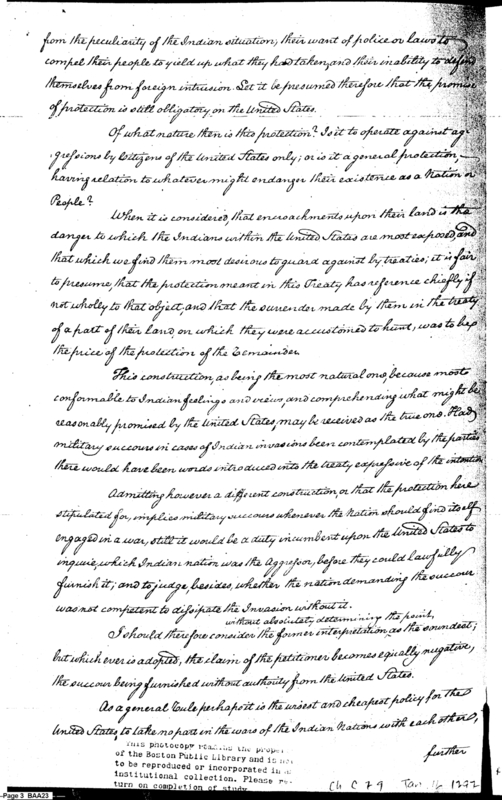 from the peculiarity of the Indian situation; their want of police or laws to
compel their people to yield up what they had taken, and their inability to defend
themselves from foreign intrusion. Let it be presumed therefore that the promise
of protection is still obligatory on the United States.
Of what nature then is this protection? Is it to operate against ag-
gressions by Citizens of the United States only; or is it a general protection,
having relation to whatever might endanger their existence as a Nation or
People?
When it is considered, that encroachments upon their land is the
danger to which the Indians within the United States are most exposed, and
that which we find them most desirous to guard against by treaties; it is fair
to presume, that the protection meant in this Treaty has reference chiefly if
not wholly to that object, and that the surrender made by them in the treaty
of a part of their land, on which they were accustomed to hunt, was to be
the price of the protection of the remainder.
This construction, as being the most natural one, because most
conformable to Indian feelings and views, and comprehending what might be
reasonably promised by the United States, may be received as the true one. Had
military succours in cases of Indian invasions been contemplated by the parties
there would have been words introduced into the treaty expressive of the intention
Admitting however a different construction, or that the protection here
stipulated for, implies military succours whenever the Nation should find itself
engaged in a war, still it would be a duty incumbent upon the United States to
inquire, which Indian nation was the Aggressor, before they could lawfully
furnish it; and to judge, besides, whether the nation demanding the succour
was not competent to dissipate the Invasion without it.
without absolutely determining the point,
I should therefore consider the former interpretation as the soundest;
but which ever is adopted, the claim of the petitioner becomes equally negative,
the succour being furnished without authority from the United States.
As a general rule perhaps it is the wisest and cheapest policy for the
United States, to take no part in the wars of the Indian Nations with each other,
further
This photocopy remains the proper
of the Boston Public Library and is not
to be reproduced or incorporated in
institutional collection. Please re
turn on completion of study.
Ch C 7 9 Jan. 16 1792
Page 3 BAA23